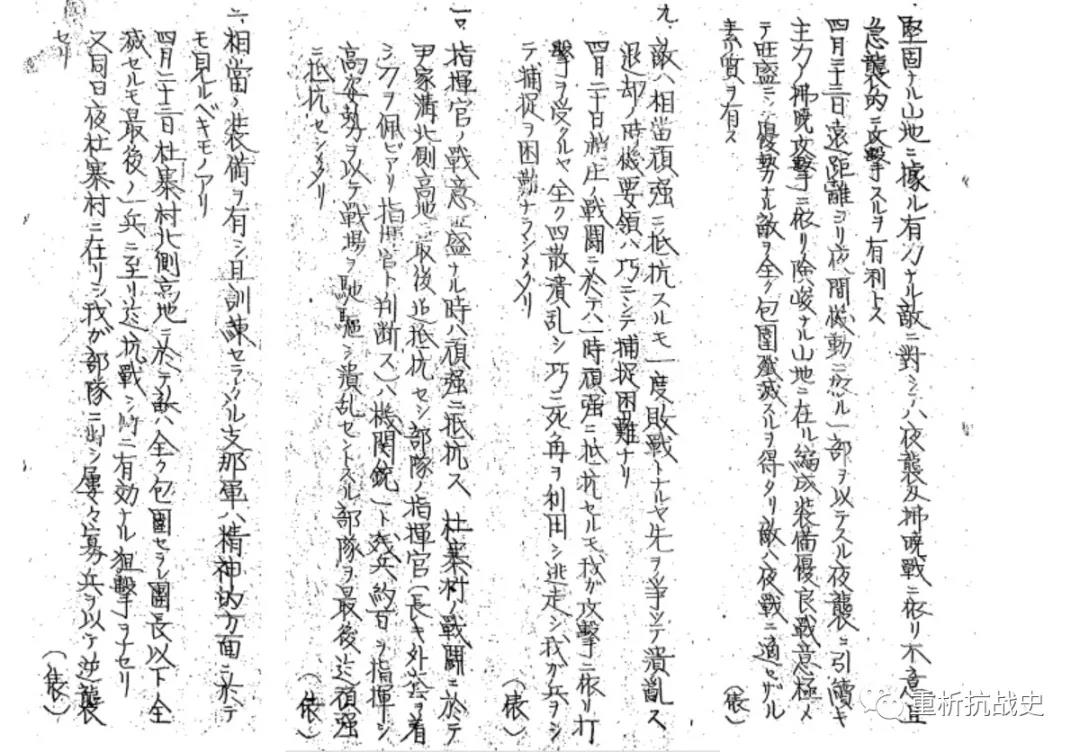 堅固ナル山地ニ據ル有力ナル敵ニ對シテハ夜襲及拂曉戰ニ依リ不意且
急襲的ニ攻撃スルヲ有利トス
四月二十三日遠距離ヨリ夜間機動ニ依ル一部ヲ以テスル夜襲ニ引續キ
主力ノ拂曉攻撃ニ依リ險峻ナル山地ニ在ル編成裝備優良戰意極メ
テ旺盛ニシ優勢ナル敵ヲ全ク包圍殲滅スルヲ得タリ敵ハ夜戰ニ適セザル
素質ヲ有ス
(俵)
九、敵ハ相當頑强ニ抵抗スルモ一度敗戰トナルヤ先ヲ爭ツテ潰亂ス
退却ノ時機要領ハ巧ニシテ捕捉困難ナリ
四月二十日 庄ノ戰鬪ニ於テハ一時頑强ニ抵抗セルモ我ガ攻撃ニ依リ打
撃ヲ受クルヤ全ク四散潰乱シ巧ニ死角ヲ利用シ逃走シ我ガ兵ヲシ
テ捕捉ヲ困難ナラシメタリ
(俵)
一〇、指揮官ノ戰意旺盛ナル時ハ頑强ニ抵抗ス 杜寨村ノ戰鬪ニ於テ
尹家溝北側高地ニ最後迄抵抗セシ部隊ノ指揮官(長キ外套ヲ着
シ刀ヲ佩ビアリ指揮官ト判断ス)ハ機関銃一ト残兵約百ヲ指揮シ
高姿勢ヲ以テ戰場ヲ馳驅シ潰乱セントスル部隊ヲ最後迄頑强
ニ抵抗セシメタリ
(俵)
二、相當ノ裝備ヲ有シ且訓練セラレタル支那軍ハ精神的方面ニ於テ
モ見ルベキモノアリ
四月二十三日杜寨村北側高地ニ於テ敵ハ全ク包圍セラレ團長以下全
滅セルモ最後ノ一兵ニ至ル迄抗戰シ 特ニ有効ナル狙撃ヲナセリ
又同日夜杜寨村ニ在リシ我ガ部隊ニ對シ屢々寡兵ヲ以テ逆襲
セリ
(俵)
重析抗战史